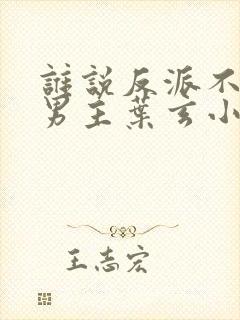 誰說反派不
男主葉玄小
王志宏